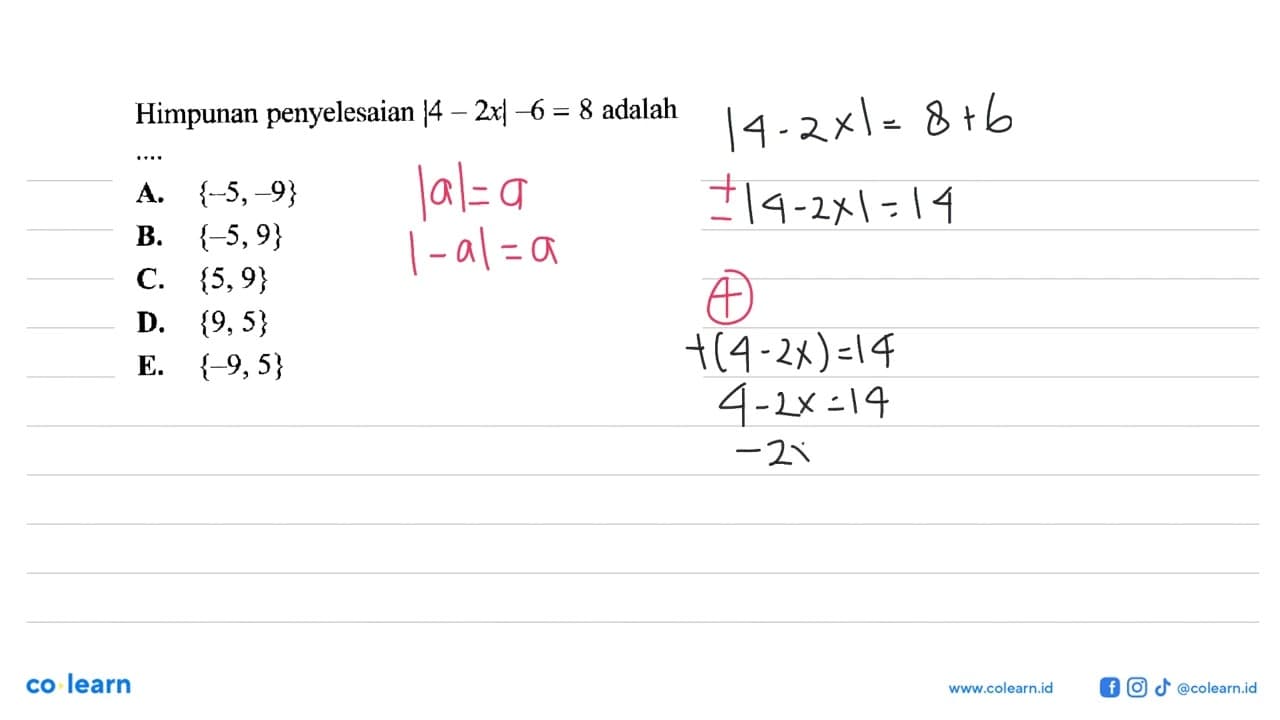 Himpunan penyelesaian |4 – 2x| –6 = 8 adalah
....
A. {–5, –9}
B. {–5, 9}
C. {5, 9}
D. {9, 5}
E. {–9, 5}
|a|= a
|-a|= a
|4-2x|= 8+6
±|4-2x|=14
+
+(4-2x)=14
4-2x=14
-2x
co learn
www.colearn.id
@colearn.id